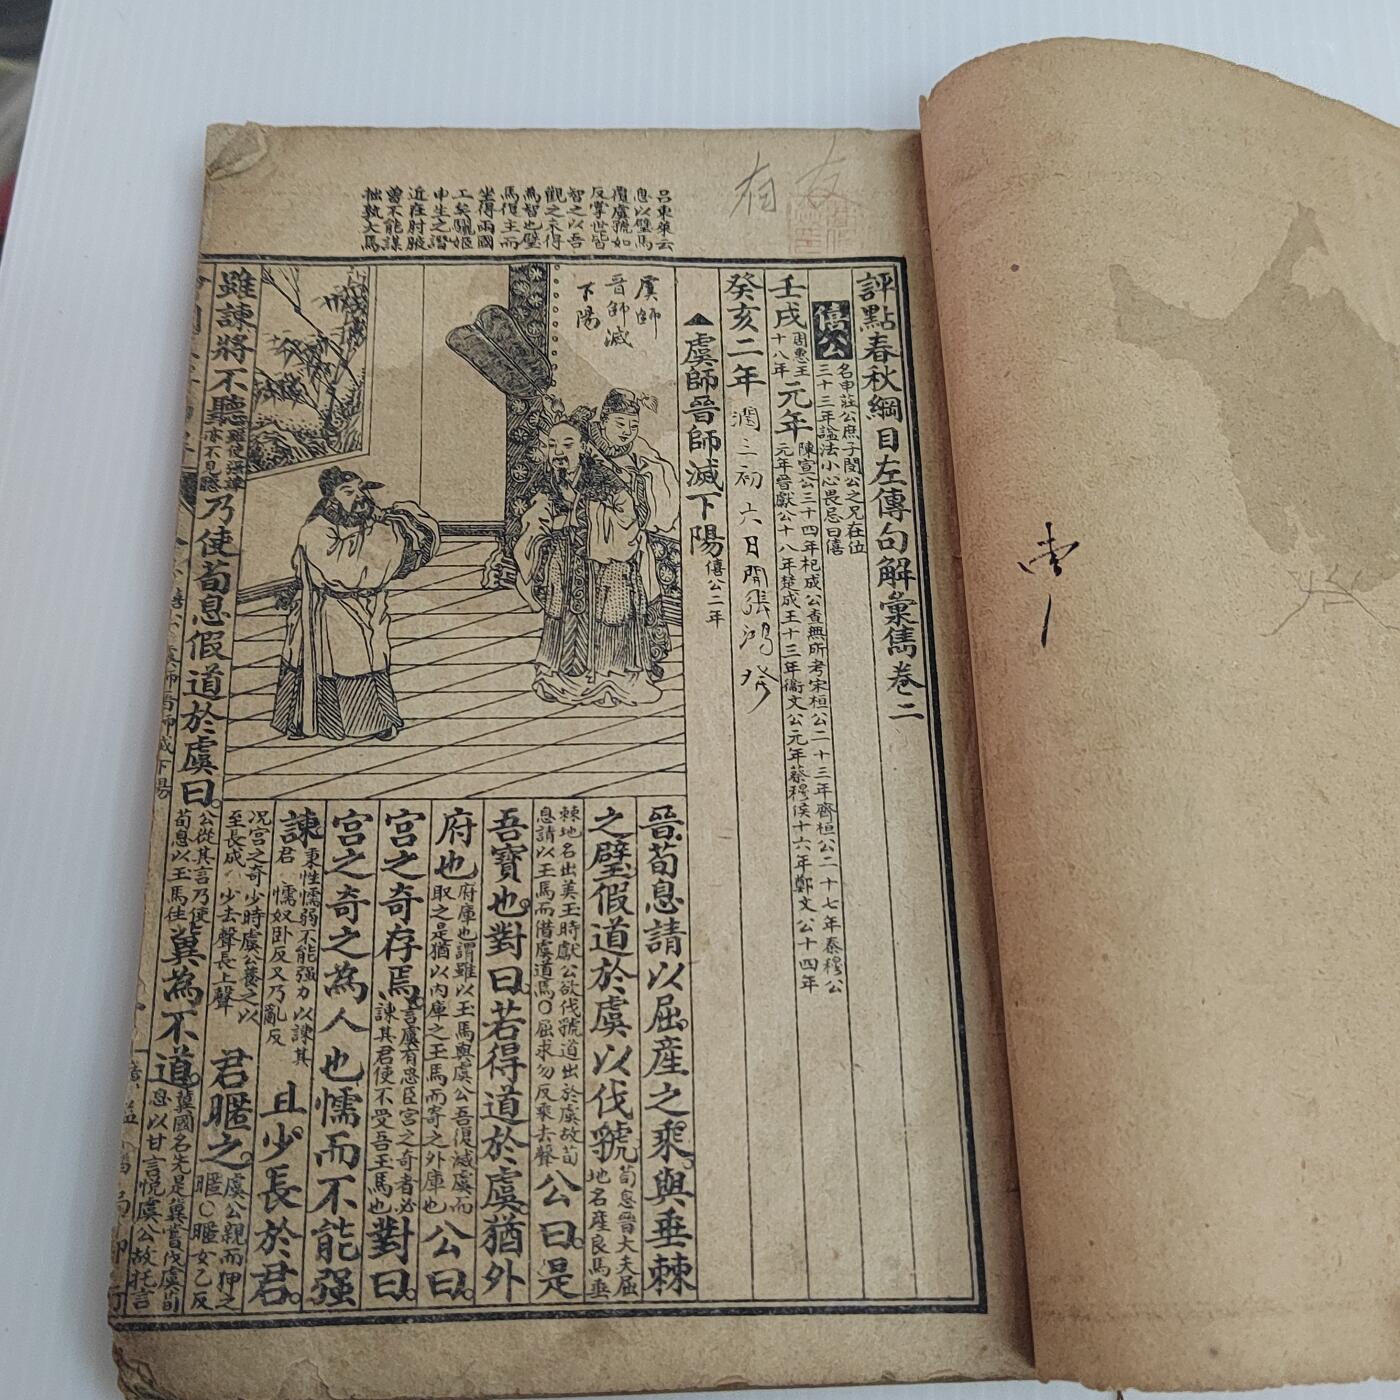 呂東萊云
息以璧馬
覆虞虢如
反掌世皆
智之以吾
觀之未得
為智也璧
馬復主而
坐得兩國
工矣驪姬
申生之譖
近在肘腋
曽不能謀
拙孰大焉
友
有
評點春秋綱目左傳句解彙雋卷二
僖公
名申莊公庶子閔公之兄在位
三十三年諡法小心畏忌曰僖
壬戌
周惠王
十八年
元年
陳宣公三十四年杞成公查無所考宋桓公二十三年齊桓公二十七年秦穆公
元年晉獻公十八年楚成王十三年衞文公元年蔡穆侯十六年鄭文公十四年
癸亥二年
▲虞師晉師滅下陽僖公二年
虞師
晉師滅
下陽
晉荀息請以屈產之乘與垂棘
之璧假道於虞以伐虢
荀息晉大夫屈
地名產良馬垂
棘地名出美玉時獻公欲伐虢道出於虞故荀
息請以玉馬而借虞道焉○屈求勿反乘去聲
公曰是
吾寶也對曰若得道於虞猶外
府也
府庫也謂雖以玉馬與虞公吾復滅虞而
取之是猶以內庫之玉馬而寄之外庫也
公曰
宮之奇存焉
言虞有忠臣宮之奇者必
諫其君使不受吾玉馬也
對曰
宮之奇之為人也懦而不能强
諫
秉性懦弱不能强力以諫其
君 懦奴臥反又乃亂反
且少長於君
况宮之奇少時虞公養之以
至長成 少去聲長上聲
君暱之
虞公親而狎之
暱○暱女乙反
雖諫將不聽
雖使強諫
亦不見聽
乃使荀息假道於虞曰
公從其言乃使
荀息以玉馬往
冀為不道
冀國名先是冀嘗伐虞荀
息以甘言悅虞公故托言